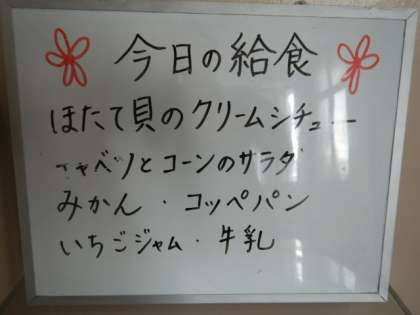 今日の給食
ほたて貝のクリームシチュー
キャベツとコーンのサラダ
みかん・コッペパン
いちごジャム・牛乳